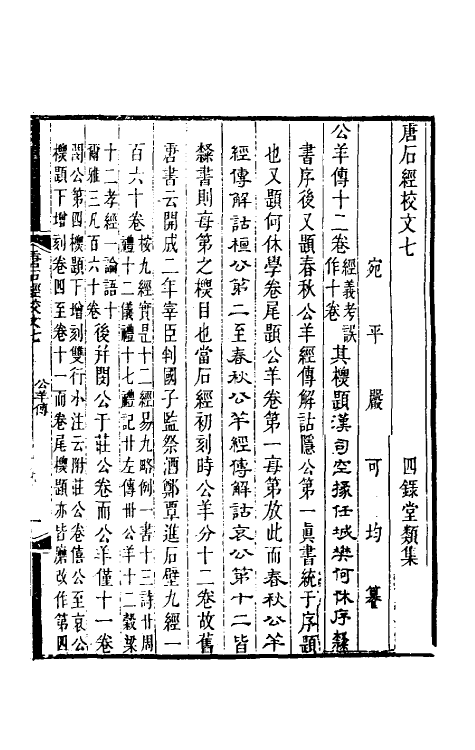 唐石經校文七　四錄堂類集
宛平嚴可均纂
公羊傳十二卷經義考誤作十卷其標題漢司空掾任城樊何休序隸
書序後又題春秋公羊經傳解詁隱公第一眞書統于序題
也又題何休學卷尾題公羊卷第一每第放此而春秋公羊
經傳解詁桓公第二至春秋公羊經傳解詁哀公第十二皆
隸書則每第之標目也當石經初刻時公羊分十二卷故舊
唐書云開成二年宰臣判國子監祭酒鄭覃進石壁九經一
百六十卷校九經實是十二經易九略例一書十三詩廿周禮十二儀禮十七禮記廿左傳卅公羊十二穀梁
十二孝經一論語十爾雅三凡百六十卷後并閔公于莊公卷而公羊僅十一卷
閔公第四標題下增刻雙行小注云附莊公卷僖公至哀公標題下增刻卷四至卷十一而卷尾標題亦皆磨改作第四
唐石經校文七
公羊傳
一